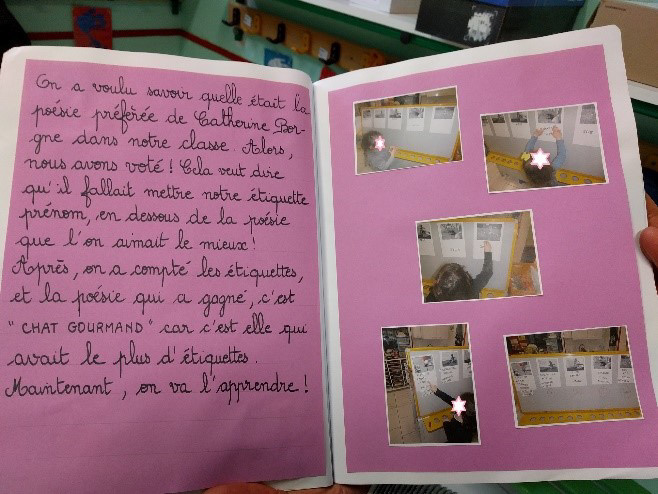 On a voulu savoir quelle était la
poésie préférée de Catherine Bor-
gne dans notre classe. Alors,
nous avons voté ! Cela veut dire
qu'il fallait mettre notre étiquette
prénom, en dessous de la poésie
que l'on aimait le mieux !
Après, on a compté les étiquettes,
et la poésie qui a gagné, c'est
"CHAT GOURMAND" car c'est elle qui
avait le plus d'étiquettes.
Maintenant, on va l'apprendre !